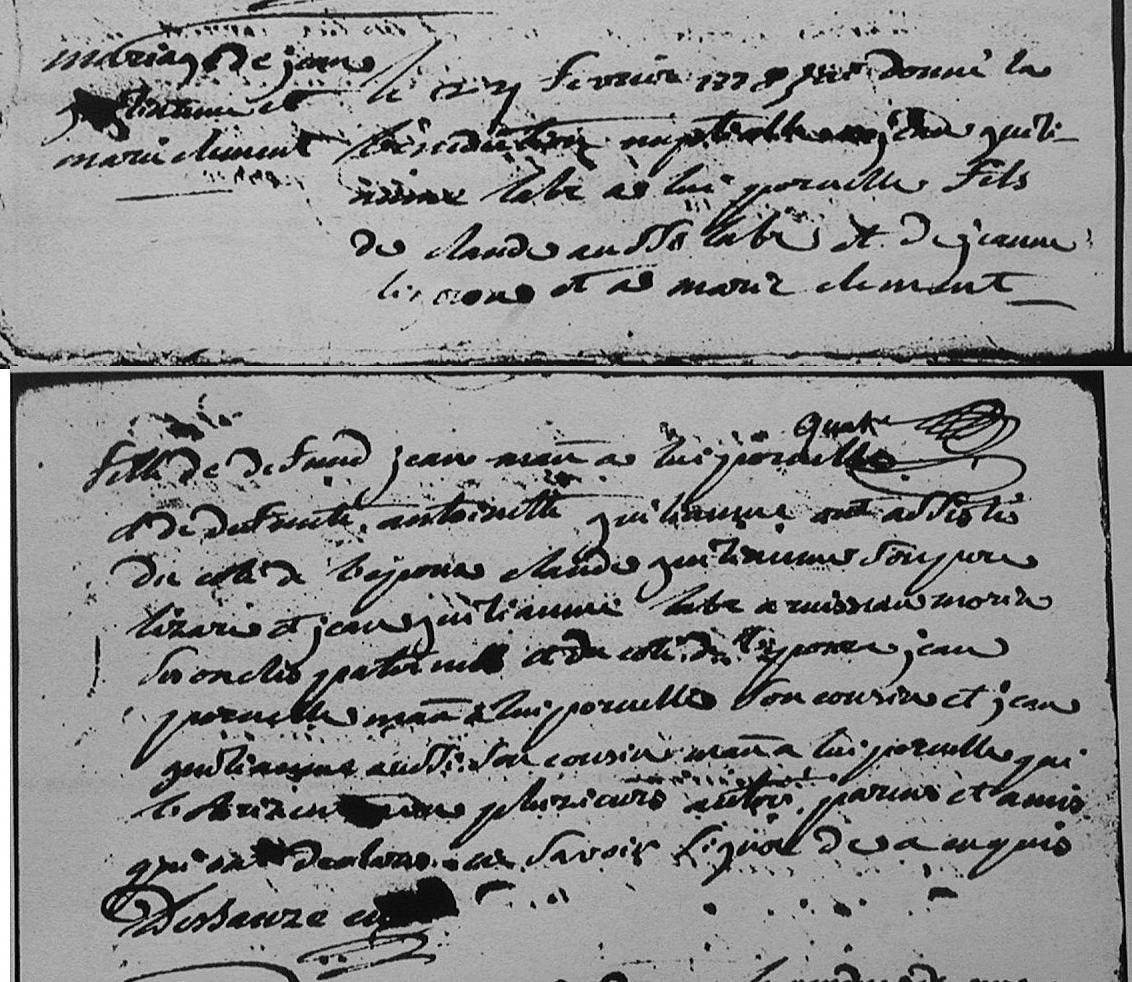 mariage de jean
guiliaume et
marie clement
le 27 fevrier 1778 j'ai donné la
benediction nuptialle a jean guili-
aume labr a luiporcelle fils
de claude aussi labr et de jeanne
et a marie clement
quatre
fille de defund jean man a luiporcelle
et de defunte antoinette guiliaume ont assisté
du coté de l'epoux claude guiliaume son pere
lizarn et jean guiliaume labr a ruissau morin
ses oncles paternels et du coté de l'epouse jean
porcelle man a luiporcelle son cousin et jean
guiliaume aussi son cousin man a luiporcelle qui
plusieurs autres parens et amis
qui ont declaré ne savoir signer de ce enquis
Dessauze curé